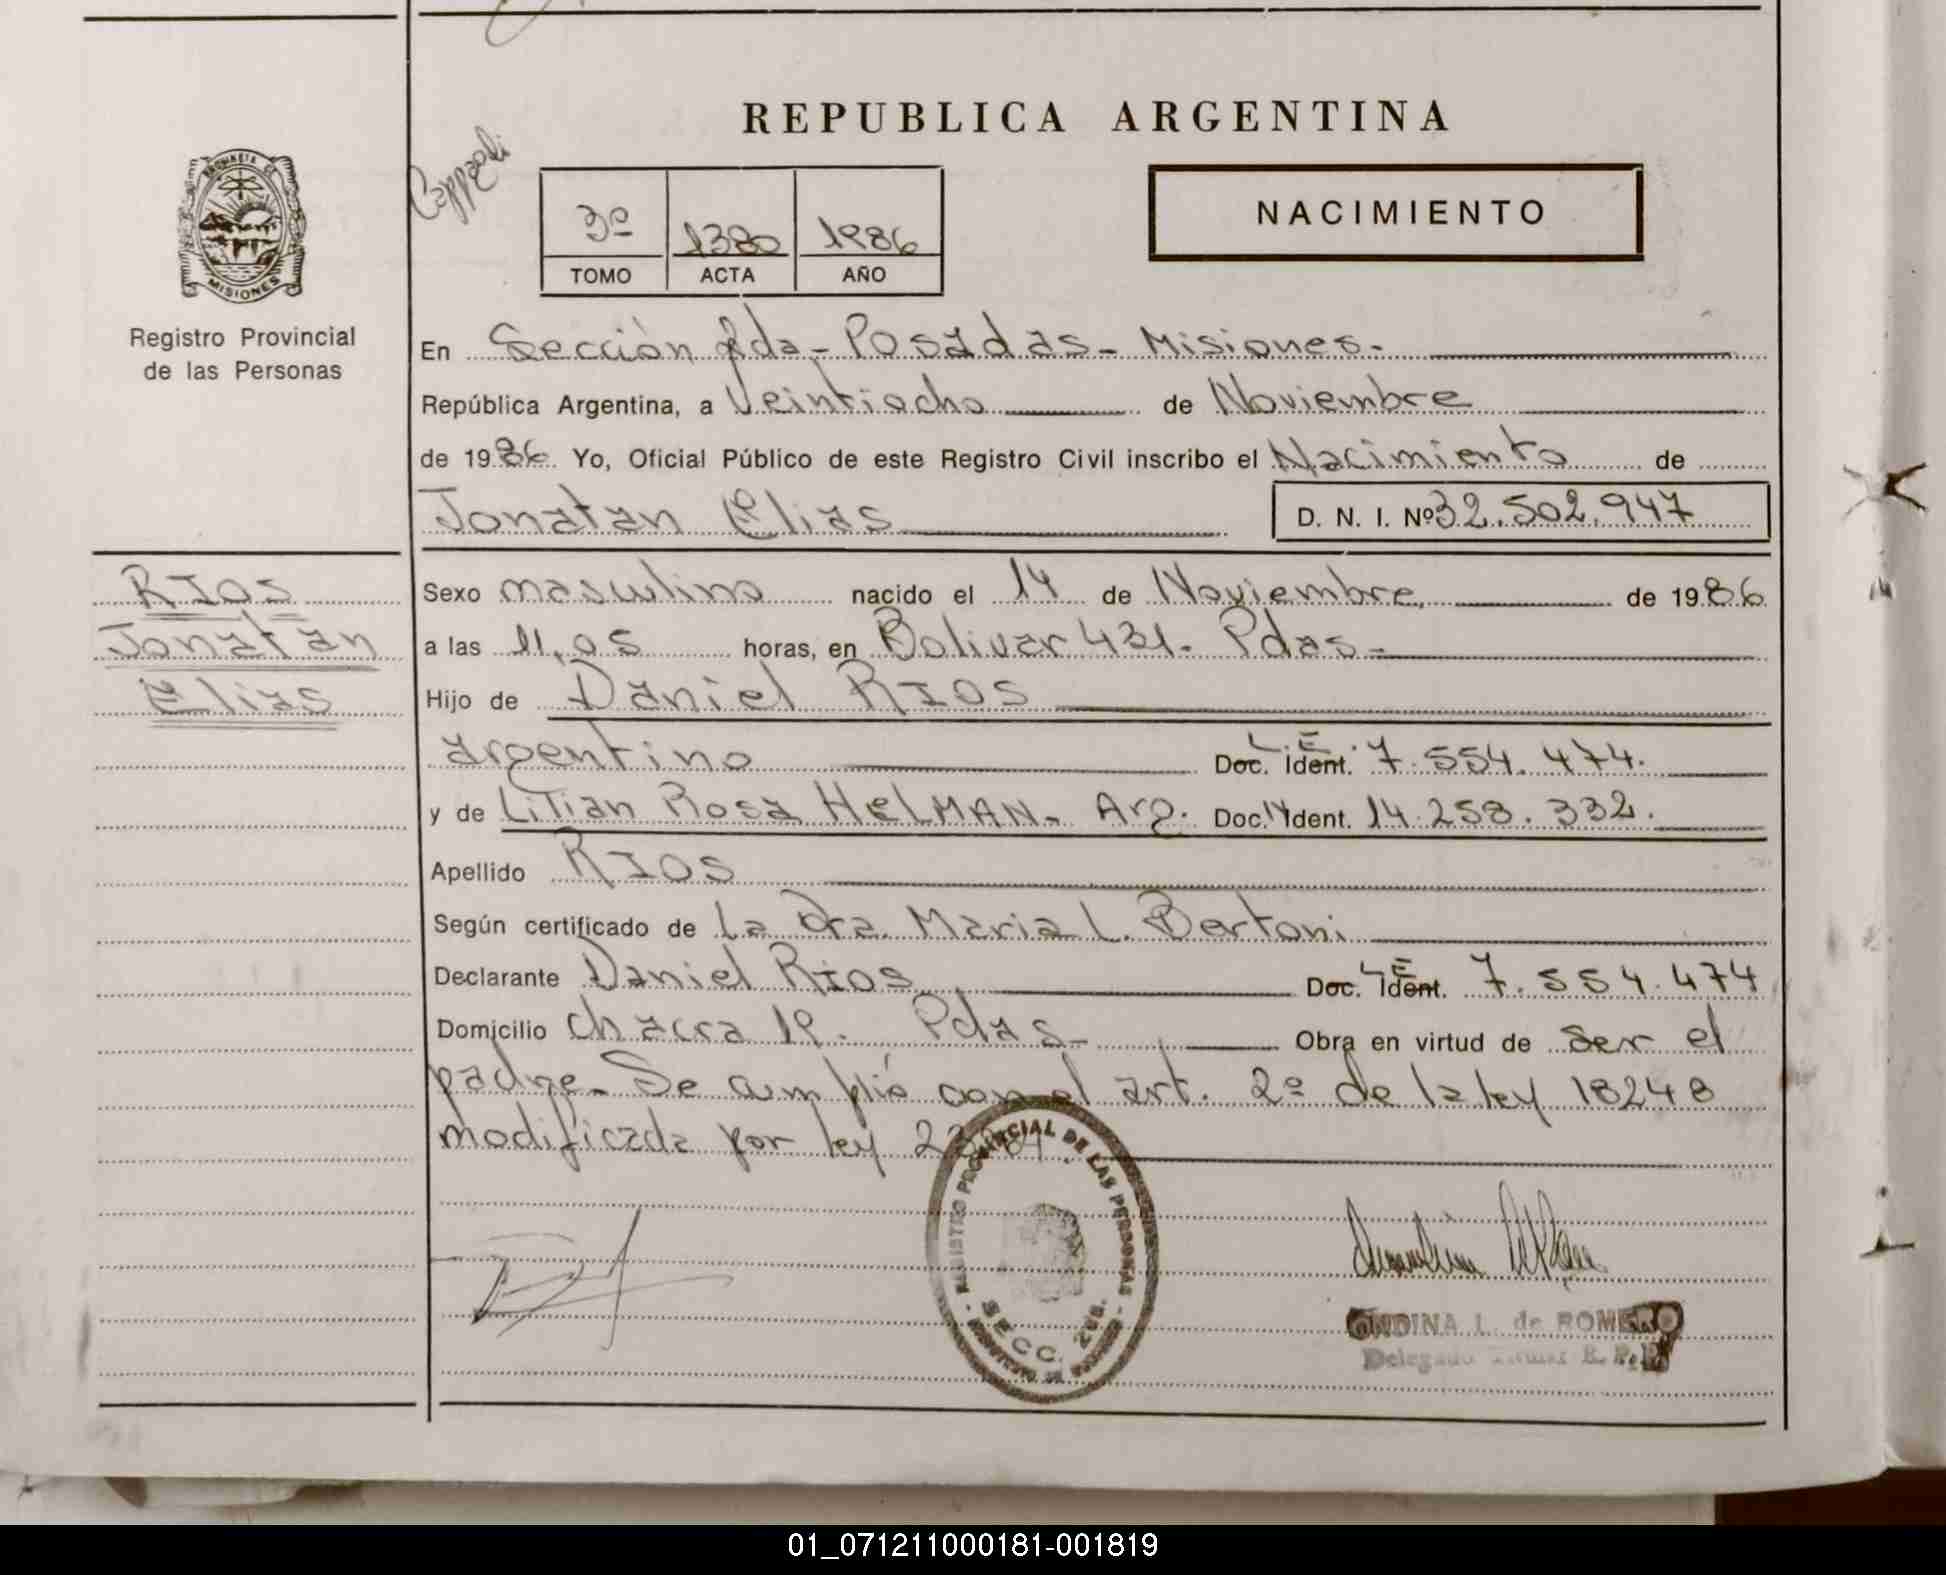 REPUBLICA ARGENTINA
Cappeli
3º 1380 1986
TOMO ACTA AÑO
NACIMIENTO
PROVINCIA DE
MISIONES
Registro Provincial
de las Personas
En Sección 2da - Posadas - Misiones.
República Argentina, a Veintiocho de Noviembre
de 1986 Yo, Oficial Público de este Registro Civil inscribo el Nacimiento de
Jonatan Elias D. N. I. Nº 32.502.947
RIOS
Jonatan
Elias
Sexo masculino nacido el 14 de Noviembre de 1986
a las 11,05 horas, en Bolivar 431. Pdas -
Hijo de Daniel RIOS
argentino Doc. Ident. L.E. 7.554.474.
y de Lilian Rosa HelMAN - Arg. Doc. Ident. 14.258.332.
Apellido RIOS
Según certificado de La Dra. Maria L. Bertoni
Declarante Daniel Rios Doc. Ident. LE 7.554.474
Domicilio chacra 19. Pdas - Obra en virtud de ser el
padre - Se cumplió con el art. 2º de la ley 18248
modificada por ley
REGISTRO PROVINCIAL DE LAS PERSONAS
SECC. 2da.
ONDINA L. de ROMERO
Delegado Titular R. P. P.
01_071211000181-001819